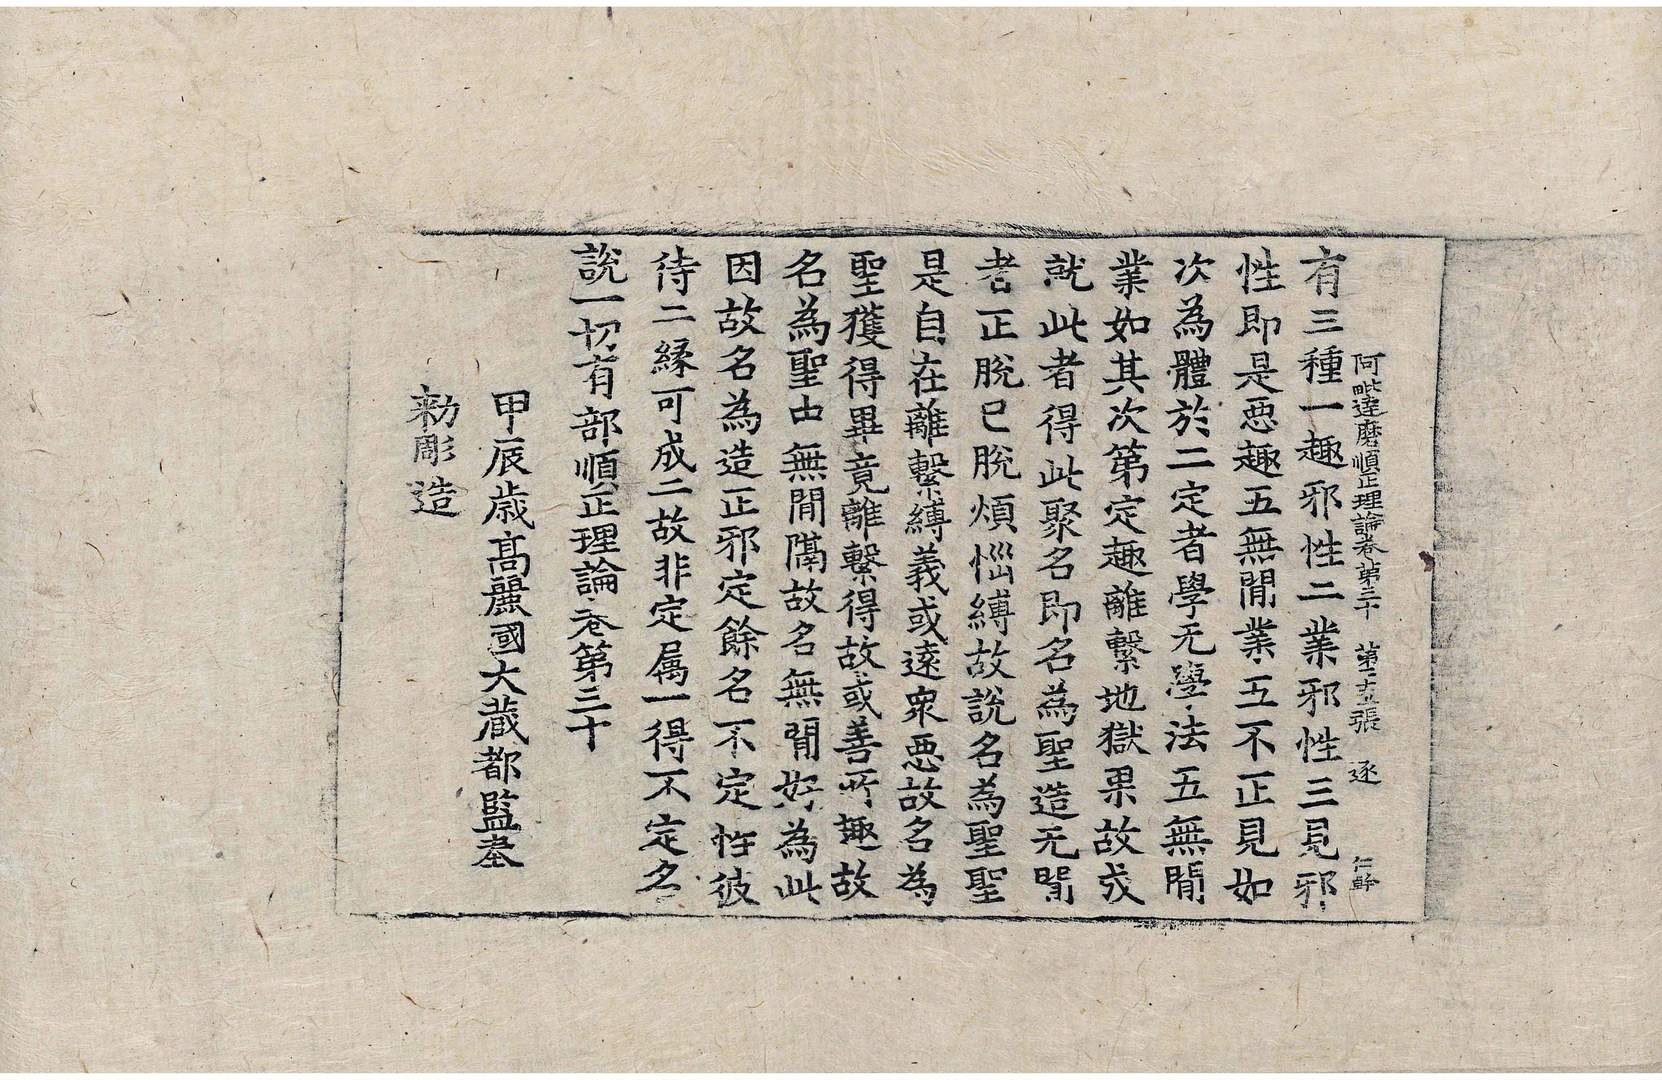 阿毗達磨順正理論卷第三十 第十五張 逐 仁幹
有三種一趣邪性二業邪性三見邪
性即是惡趣五無間業五不正見如
次為體於二定者學无學法五無間
業如其次第定趣離繫地獄果故成
就此者得此聚名即名為聖造无間
者正脫已脫煩惱縛故說名為聖聖
是自在離繫縛義或遠衆惡故名為
聖獲得畢竟離繫得故或善所趣故
名為聖由無間隔故名無間好為此
因故名為造正邪定餘名不定性彼
待二緣可成二故非定属一得不定名
說一切有部順正理論卷第三十
甲辰歲高麗國大藏都監奉
勑彫造